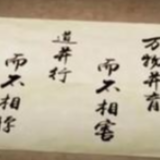 万物并育
而不相害
道并行
而不相悖